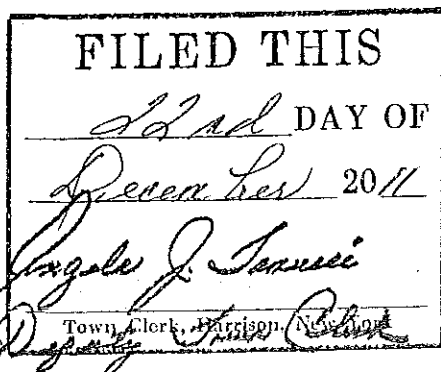 FILED THIS
22nd DAY OF
December 2011
Angela J.
Town Clerk, Harrison, New York
Deputy Town Clerk